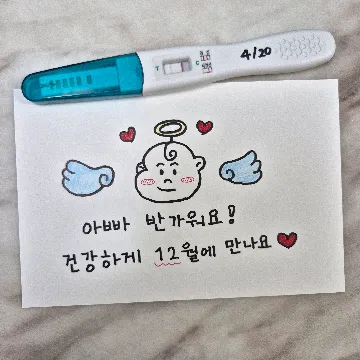 4/20
아빠 반가워요!
건강하게 12월에 만나요